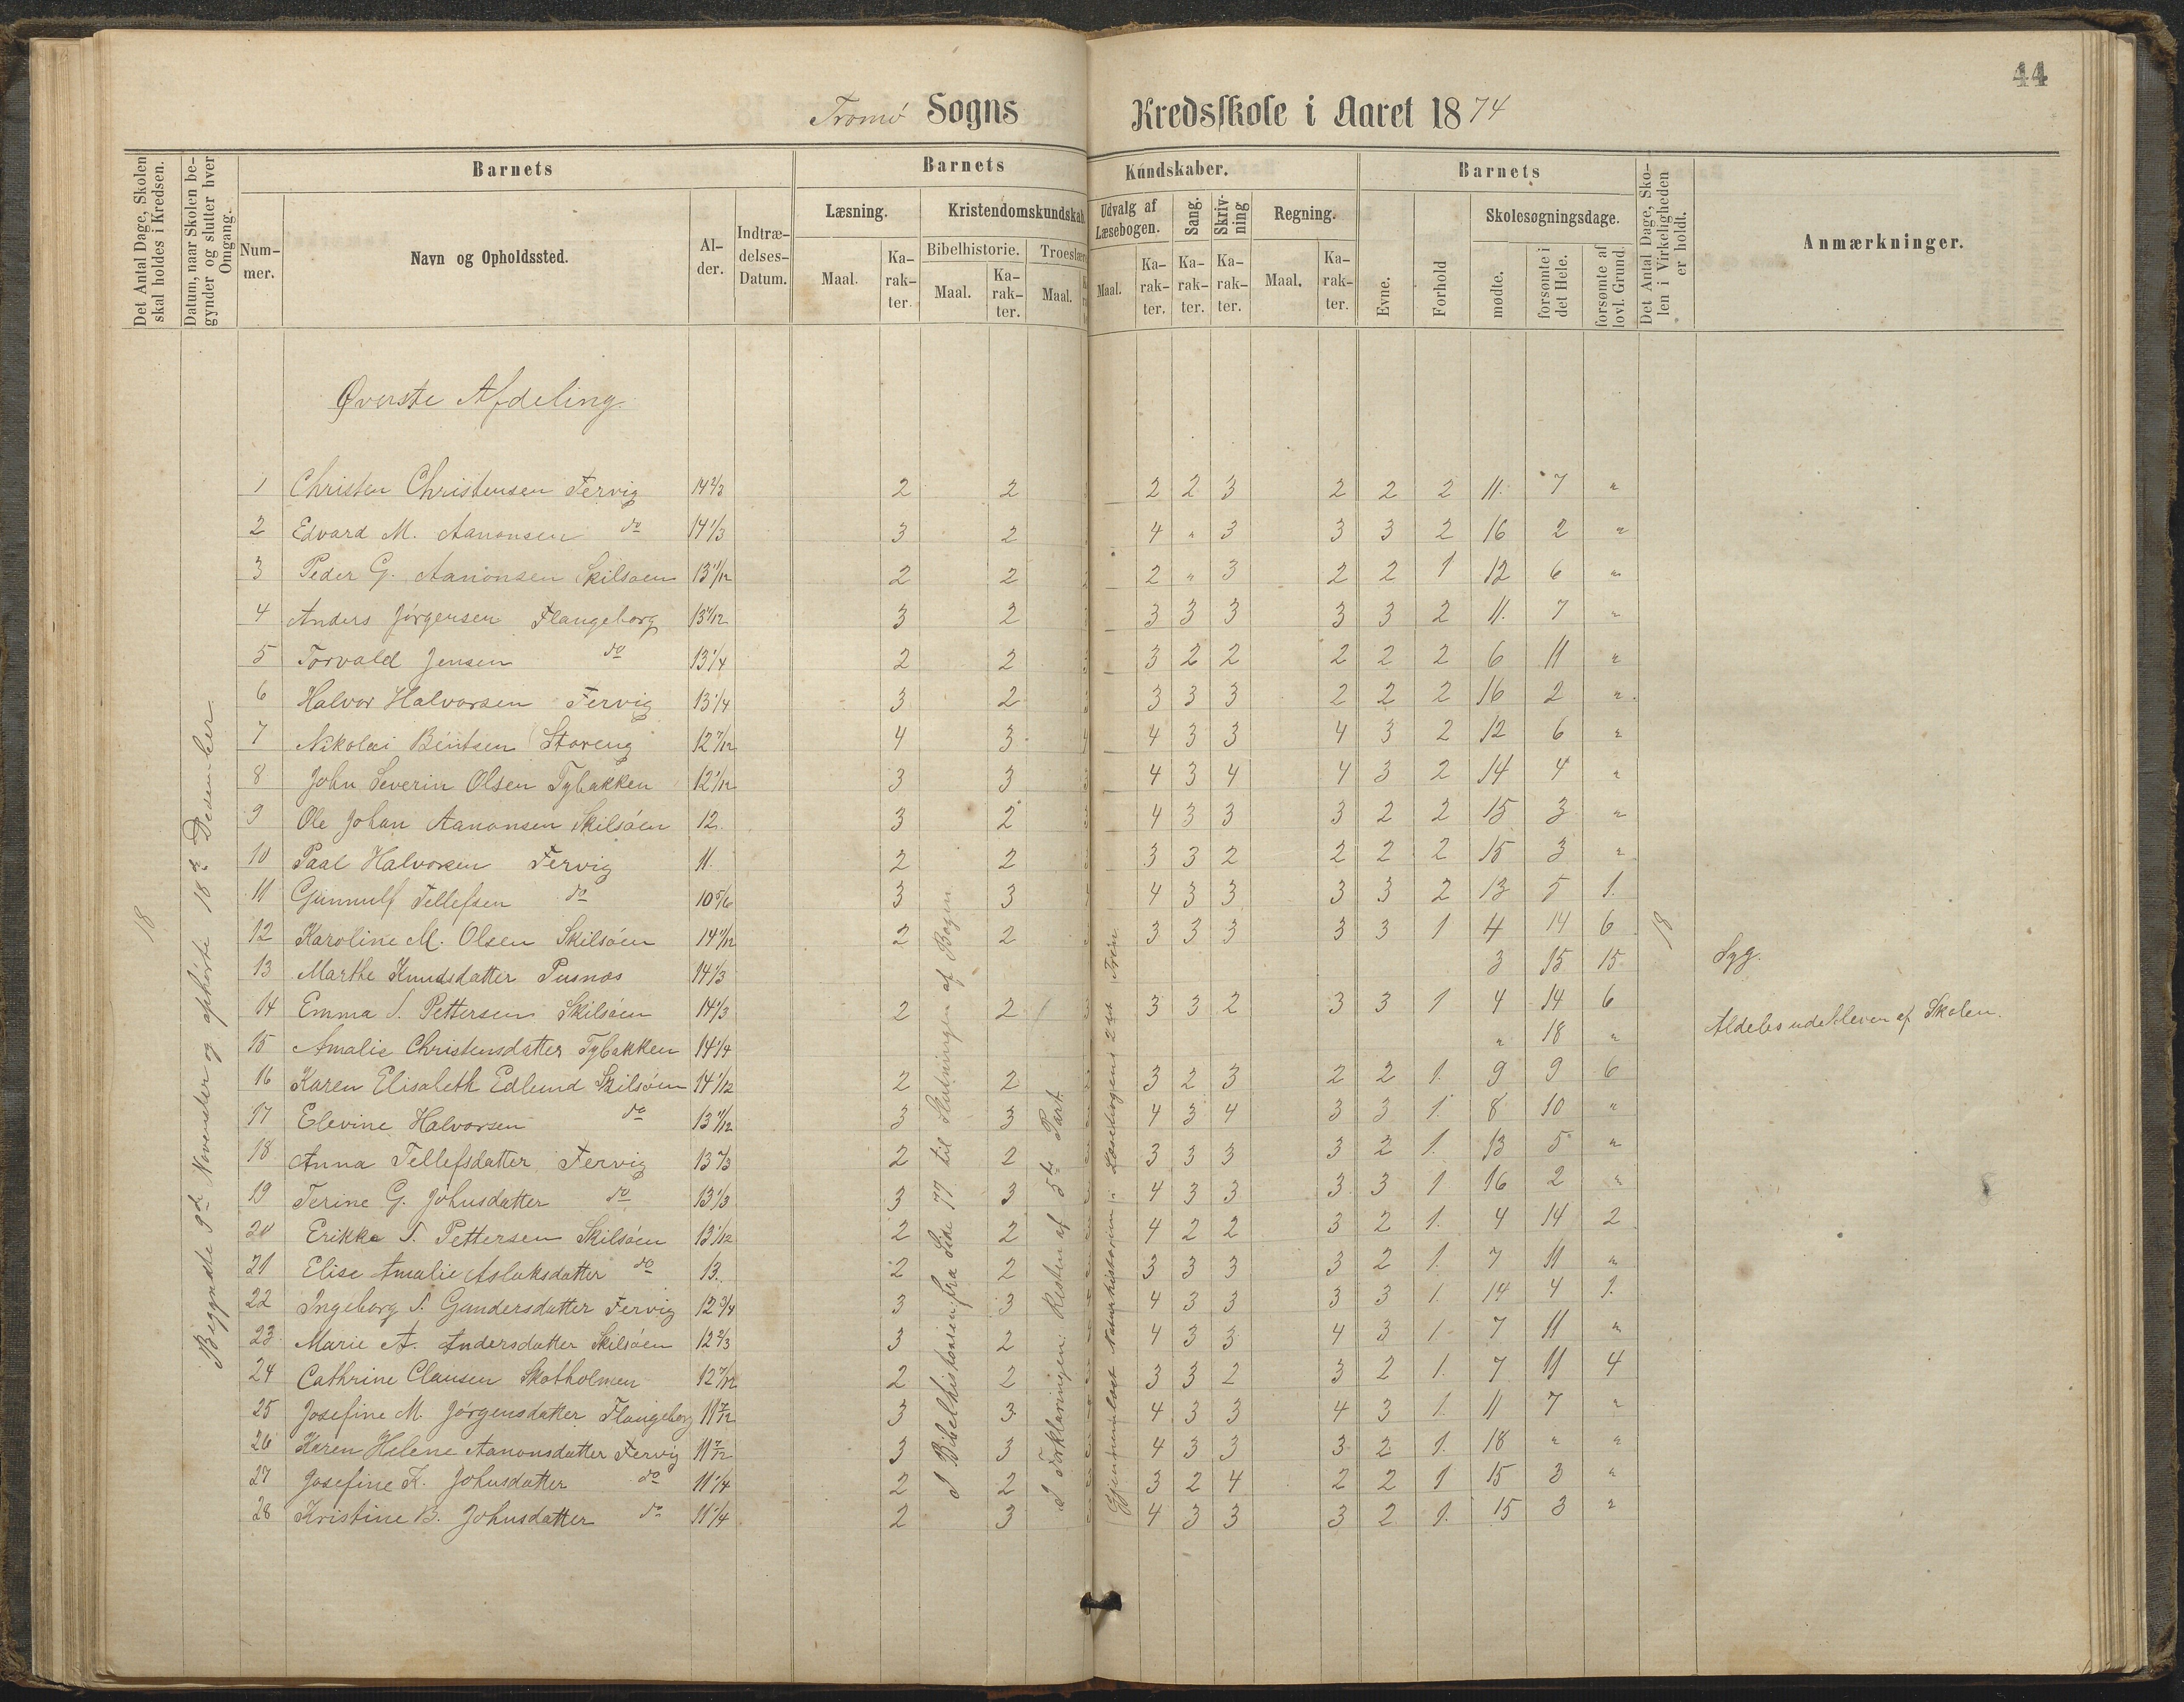 44
Tromø Sogns Kredsskole i Aaret 1874
Det Antal Dage, Skolen skal holdes i Kredsen.
Datum, naar Skolen begynder og slutter hver Omgang.
Barnets
Nummer.
Navn og Opholdssted.
Alder.
Indtrædelses-Datum.
Barnets Kundskaber.
Læsning.
Maal.
Karakter.
Kristendomskundskab
Bibelhistorie.
Maal.
Karakter.
Troeslære
Maal.
Udvalg af Læsebogen.
Maal.
Karakter.
Sang.
Karakter.
Skrivning
Karakter.
Regning.
Maal.
Karakter.
Barnets
Evne.
Forhold
Skolesøgningsdage.
mødte.
forsømte i det Hele.
forsømte af lovl. Grund.
Det Antal Dage, Skolen i Virkeligheden er holdt.
Anmærkninger.
Øverste Afdeling.
18
Begyndte 9de November og ophørte 18de December
I Bibelhistorien fra Side 77 til Slutningen af Bogen
I Forklaringen: Resten af 5te Part.
Gjennemlæst Naturhistorien i Læsebogens 2det Trin
18
1 Christen Christensen Fervig 14 2/3 2 2 2 2 3 2 2 2 11 7 "
2 Edvard M. Aanonsen do 14 1/3 3 2 4 " 3 3 3 2 16 2 "
3 Peder G. Aanonsen Skilsøen 13 11/12 2 2 2 " 3 2 2 1 12 6 "
4 Anders Jørgensen Flangeborg 13 11/12 3 2 3 3 3 3 3 2 11 7 "
5 Torvald Jensen do 13 1/4 2 2 3 2 2 2 2 2 6 11 "
6 Halvor Halvorsen Fervig 13 1/4 3 2 3 3 3 2 2 2 16 2 "
7 Nikolai Bentsen Storeng 12 7/12 4 3 4 3 3 4 3 2 12 6 "
8 John Severin Olsen Tybakken 12 1/12 3 3 4 3 4 4 3 2 14 4 "
9 Ole Johan Aanonsen Skilsøen 12 3 2 4 3 3 3 2 2 15 3 "
10 Paal Halvorsen Fervig 11 2 2 3 3 2 2 2 2 15 3 "
11 Gunnulf Tellefsen do 10 5/6 3 3 4 3 3 3 3 2 13 5 1
12 Karoline M. Olsen Skilsøen 14 11/12 2 2 3 3 3 3 3 1 4 14 6
13 Marthe Knudsdatter Pusnæs 14 1/3 3 15 15 Syg.
14 Emma S. Pettersen Skilsøen 14 1/3 2 2 3 3 2 3 3 1 4 14 6
15 Amalie Christensdatter Tybakken 14 1/4 " 18 " Aldeles udebleven af Skolen.
16 Karen Elisabeth Edlund Skilsøen 14 1/12 2 2 3 2 3 2 2 1 9 9 6
17 Elevine Halvorsen do 13 11/12 3 3 4 3 4 3 3 1 8 10 "
18 Anna Tellefsdatter Fervig 13 2/3 2 2 3 3 3 3 2 1 13 5 "
19 Terine G. Johnsdatter do 13 1/3 3 3 4 3 3 3 3 1 16 2 "
20 Erikke S. Pettersen Skilsøen 13 1/12 2 2 4 2 2 3 2 1 4 14 2
21 Elise Amalie Aslaksdatter do 13 2 2 3 3 3 3 2 1 7 11 "
22 Ingeborg S. Gundersdatter Fervig 12 3/4 3 3 4 3 3 3 3 1 14 4 1
23 Marie A. Andersdatter Skilsøen 12 2/3 3 2 4 3 3 4 3 1 7 11 "
24 Cathrine Clausen Skotholmen 12 7/12 2 2 3 3 2 3 2 1 7 11 4
25 Josefine M. Jørgensdatter Flangeborg 11 7/12 3 3 4 3 3 4 3 1 11 7 "
26 Karen Helene Aanonsdatter Fervig 11 7/12 3 3 4 3 3 3 2 1 18 " "
27 Josefine K. Johnsdatter do 11 1/4 2 2 3 2 4 2 2 1 15 3 "
28 Kristine B. Johnsdatter do 11 1/4 2 3 4 3 3 3 2 1 15 3 "